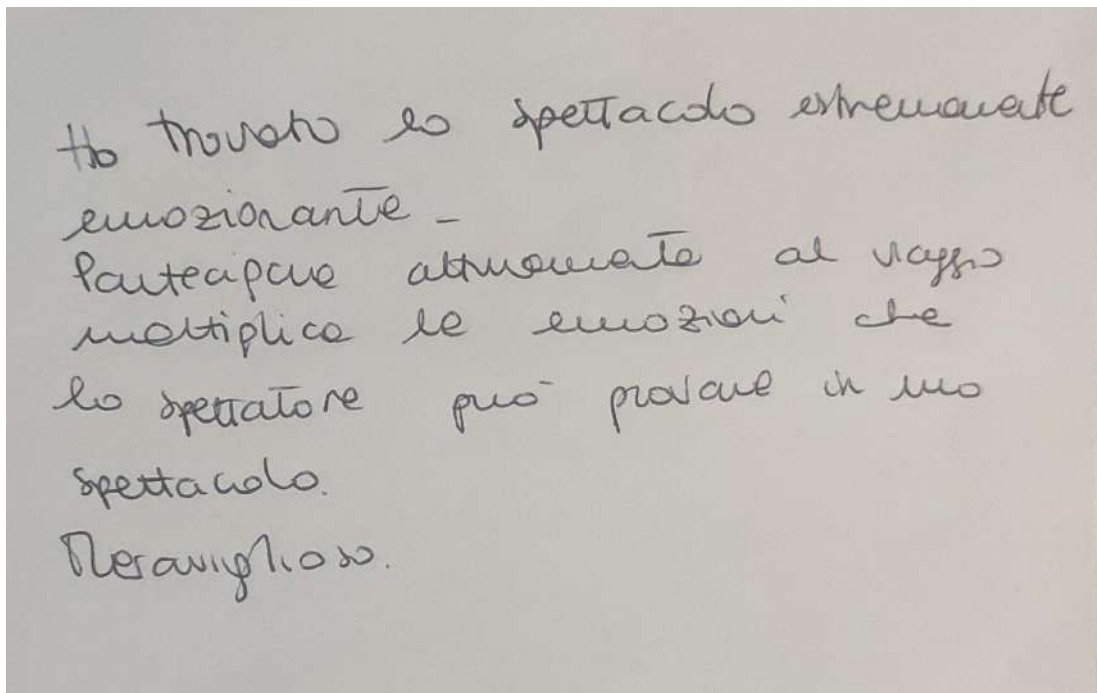 Ho trovato lo spettacolo estremamente
emozionante -
Partecipare attivamente al viaggio
moltiplica le emozioni che
lo spettatore può provare in uno
spettacolo.
Meraviglioso.